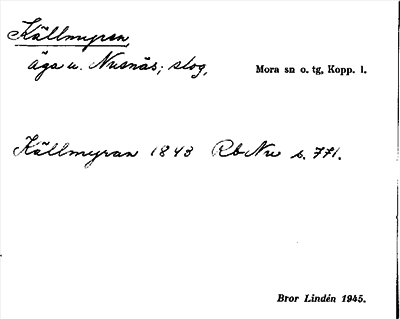 Källmyren,
äga u. Nusnäs; skog,
Mora sn o. tg, Kopp. l.
Källmyran 1843 Rb Nu s. 771.
Bror Lindén 1945.